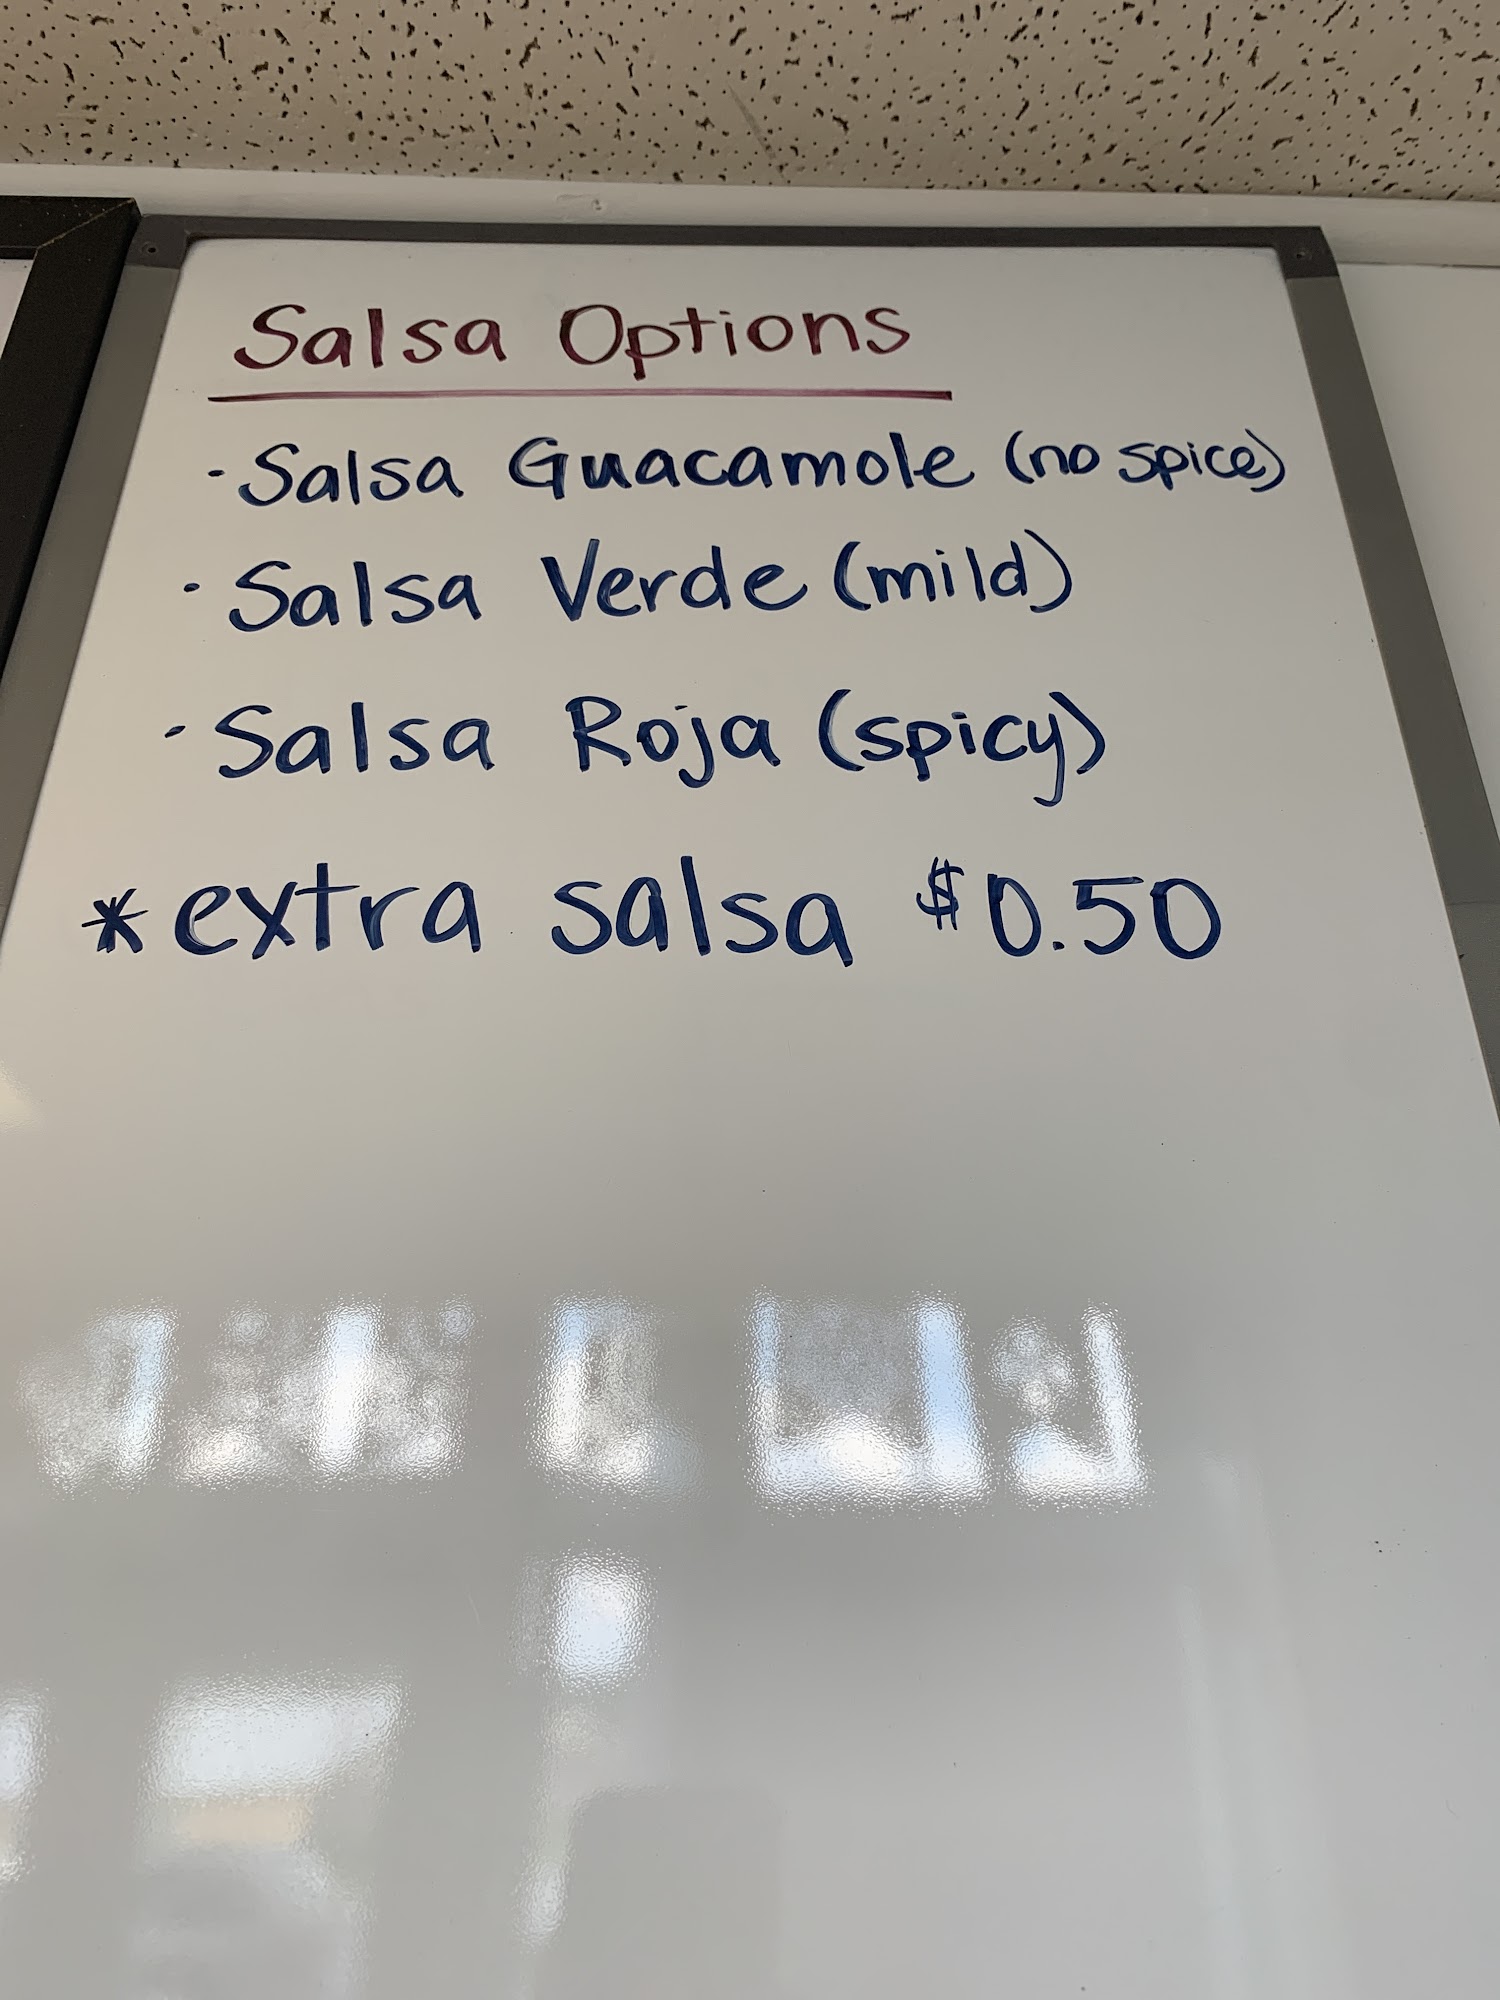 Salsa Options
- Salsa Guacamole (no spice)
- Salsa Verde (mild)
- Salsa Roja (spicy)
* extra salsa $0.50